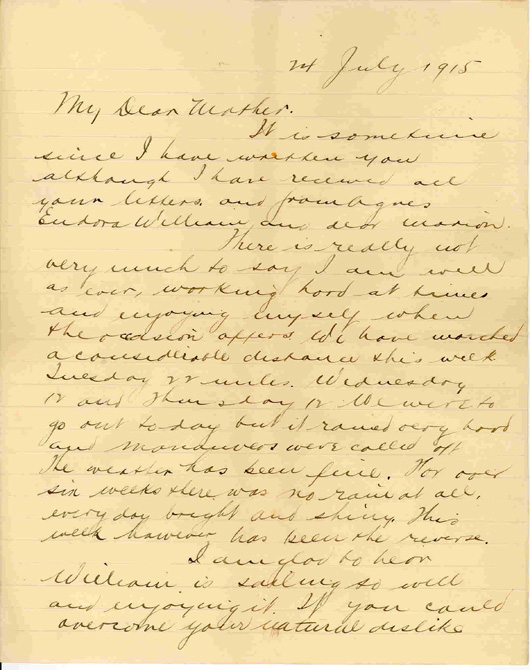 24 July 1915
My Dear Mother.
It is sometime
since I have written you
although I have received all
your letters. and from Agnes
Eudora William and dear Marion.
There is really not
very much to say I am well
as ever, working hard at times
and enjoying myself when
the occasion offers We have marched
a considerable distance this week
Tuesday 22 miles. Wednesday
12 and Thursday 12 We were to
go out to day but it rained very hard
and manouvers were called off
The weather has been fine. For over
six weeks there was no rain at all.
every day bright and shiny. This
week however has been the reverse.
I am glad to hear
William is sailing so well
and enjoying it. If you could
overcome your natural dislike